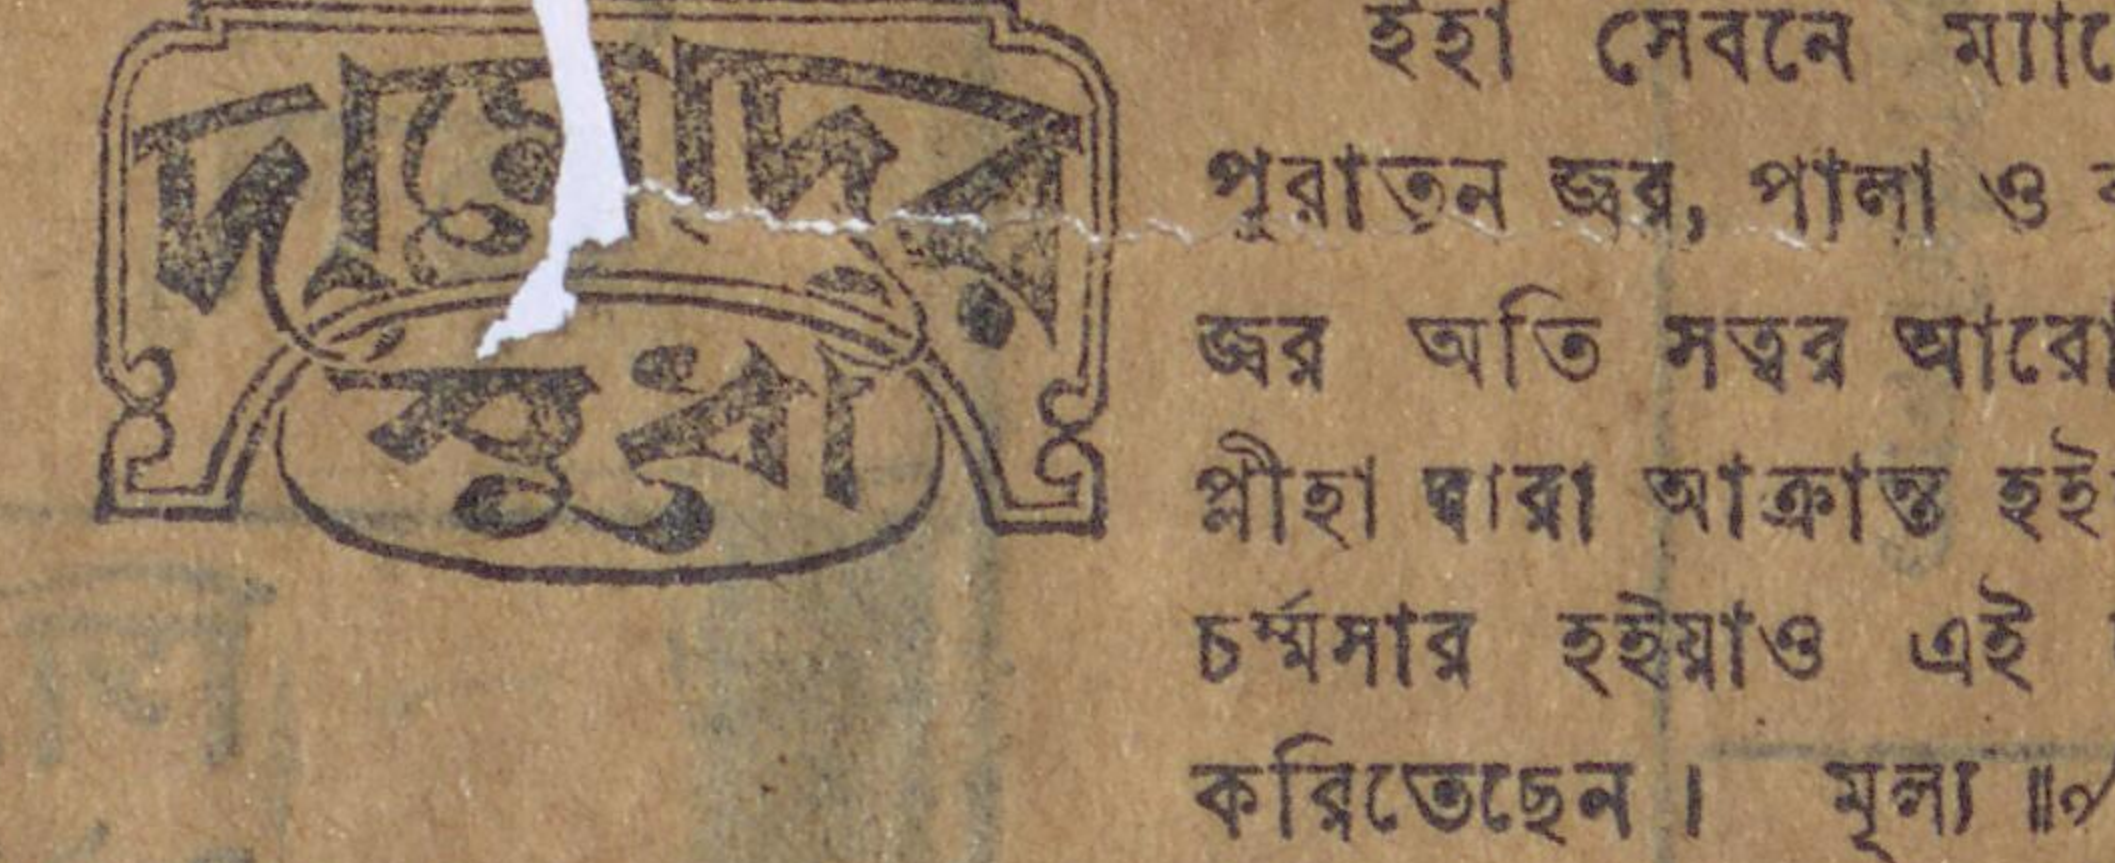 দামোদর
সুধা
ইহা সেবনে
পুরাতন জ্বর, পালা ও
জ্বর অতি সত্বর
প্লীহা দ্বারা আক্রান্ত
চর্ম্মসার হইয়াও এই
করিতেছেন। মূল্য ॥৵